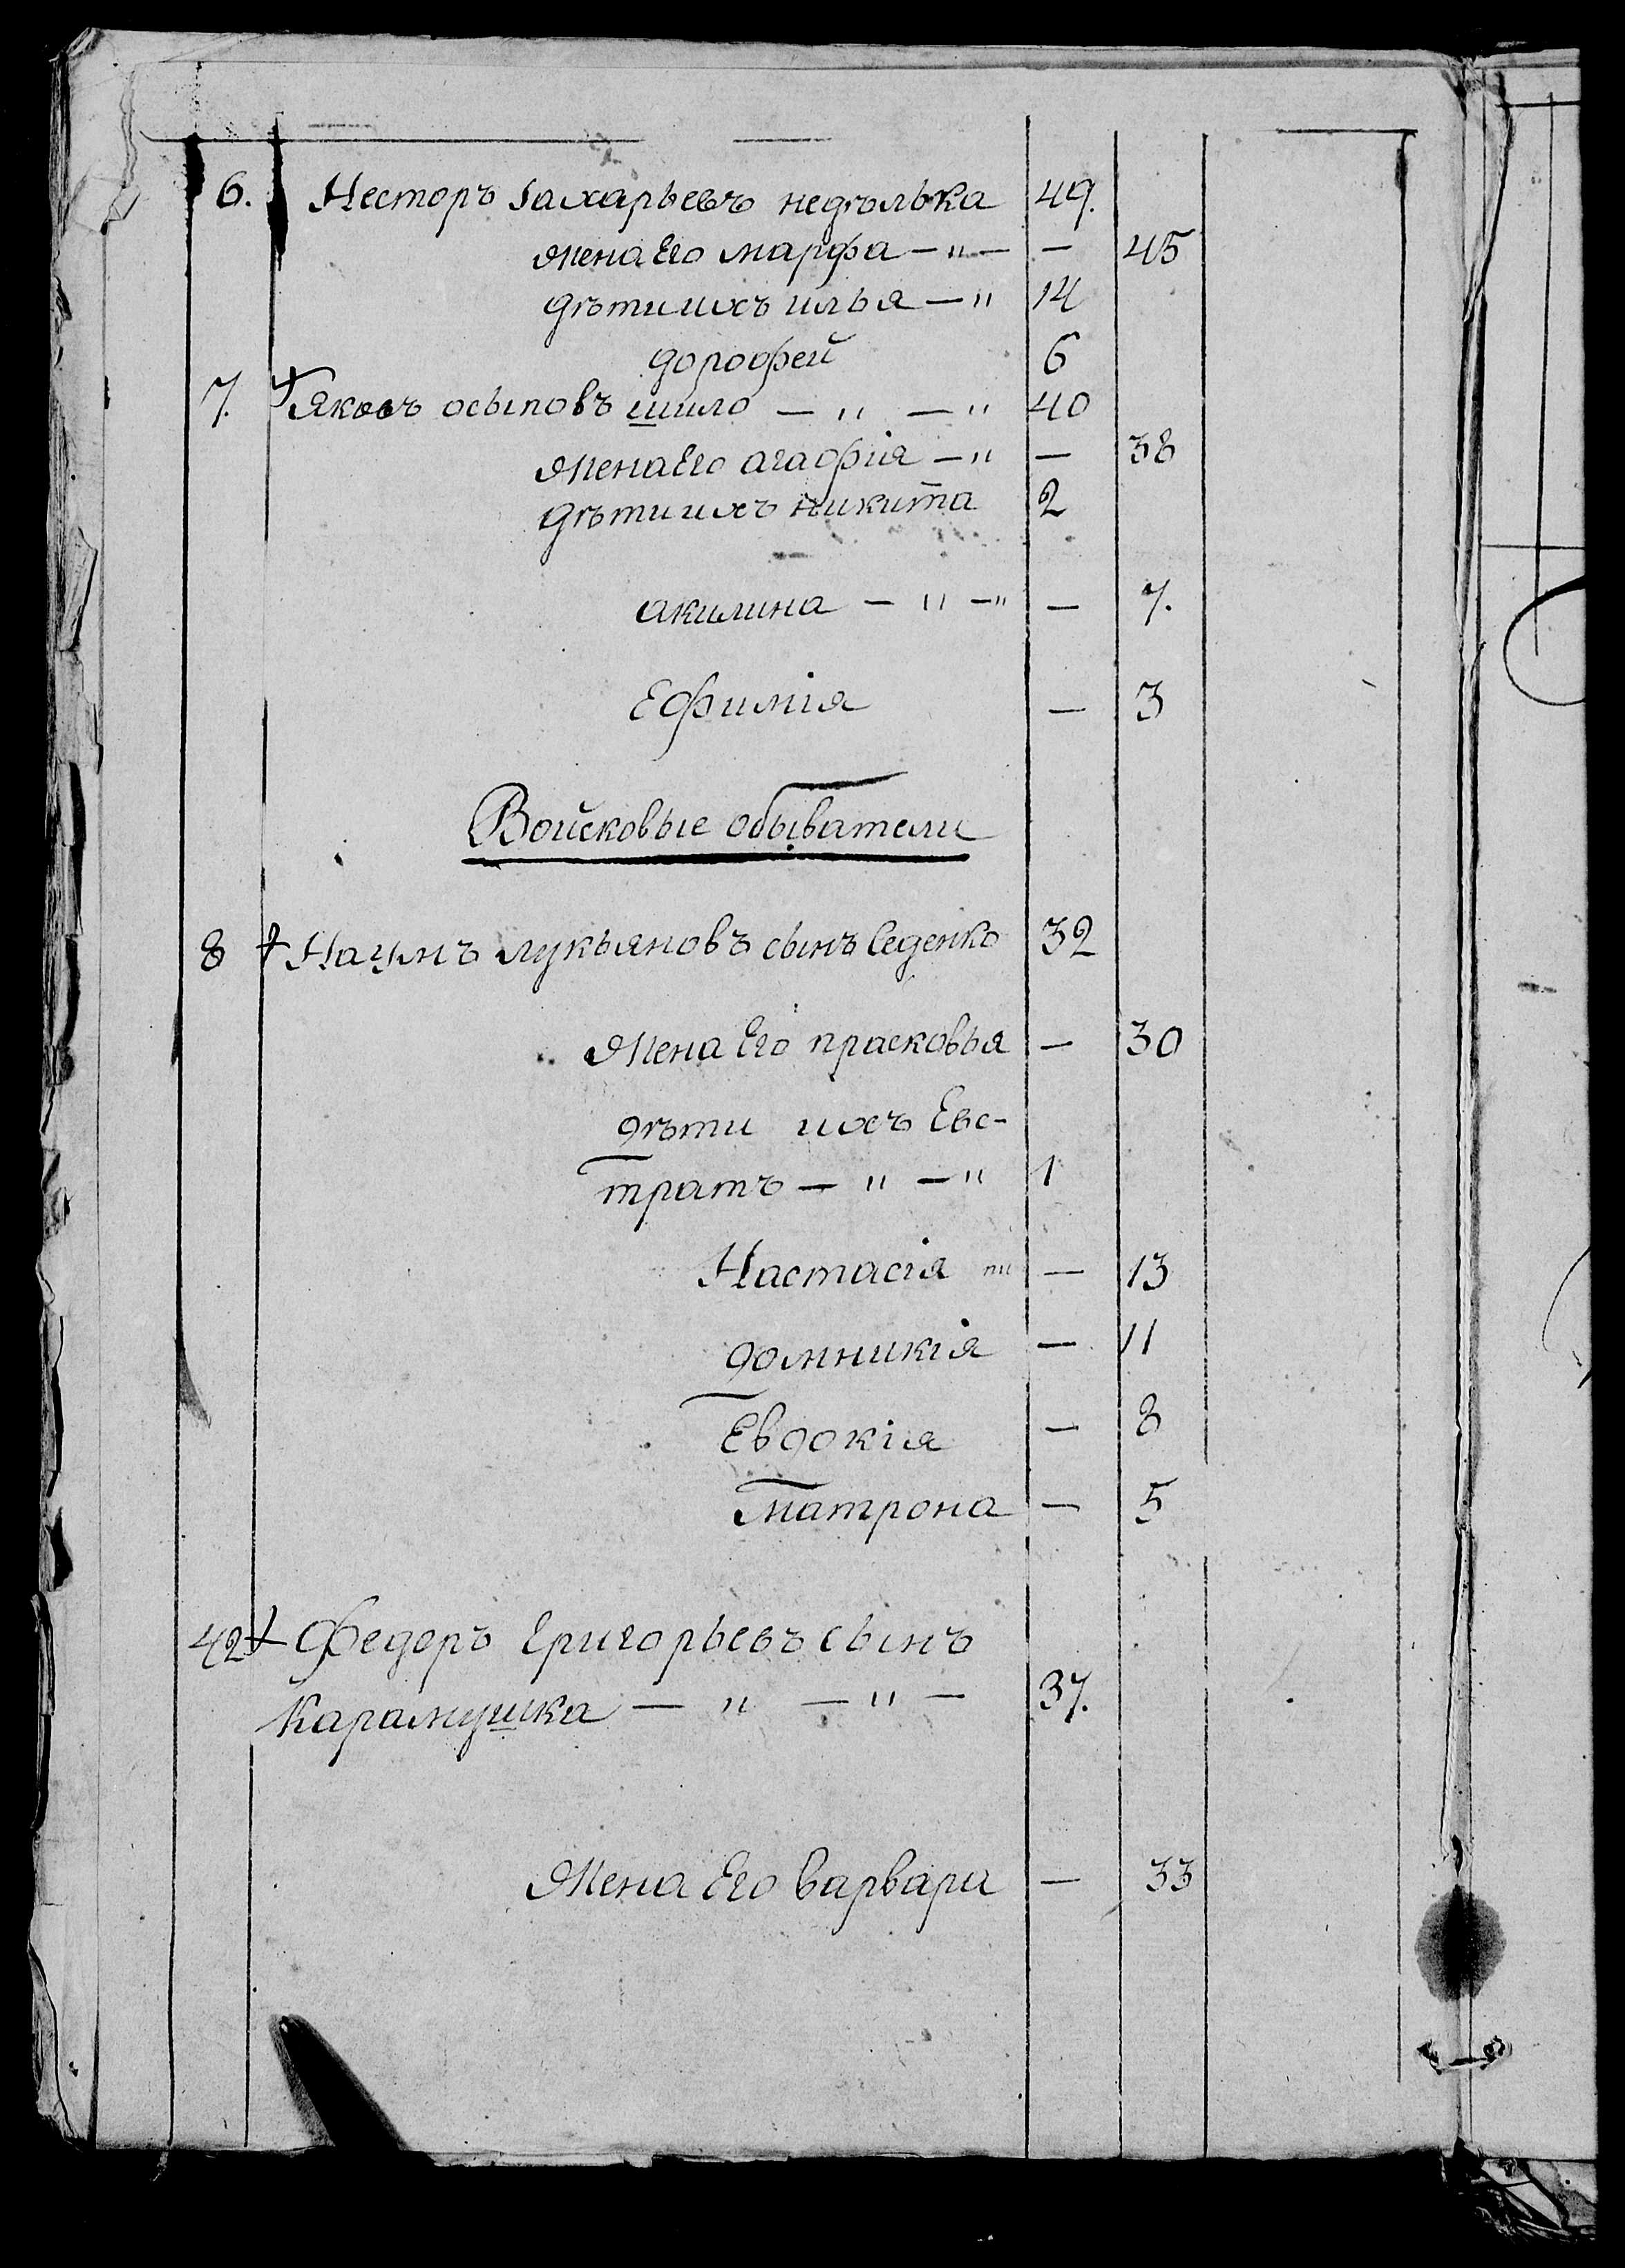 6. Несторъ Захарьевъ недѣлька 49.
жена Его марфа — " — — 45
дѣти ихъ илья — " 14
дорофей 6
7. Яковъ осыповъ шило — " — " 40
жена Его агафія — " — 38
дѣти ихъ никита 2
акилина — " — " — 7.
Ефимія — 3
Войсковые обыватели
8 Наумъ лукьяновъ сынъ Седенко 32
жена Его прасковья — 30
дѣти ихъ Евс-
тратъ — " — " 1
Настасія — 13
домникія — 11
Евдокія — 8
матрона — 5
42 Федоръ Григорьевъ сынъ
карамушка — " — " — 37.
жена Его варвара — 33